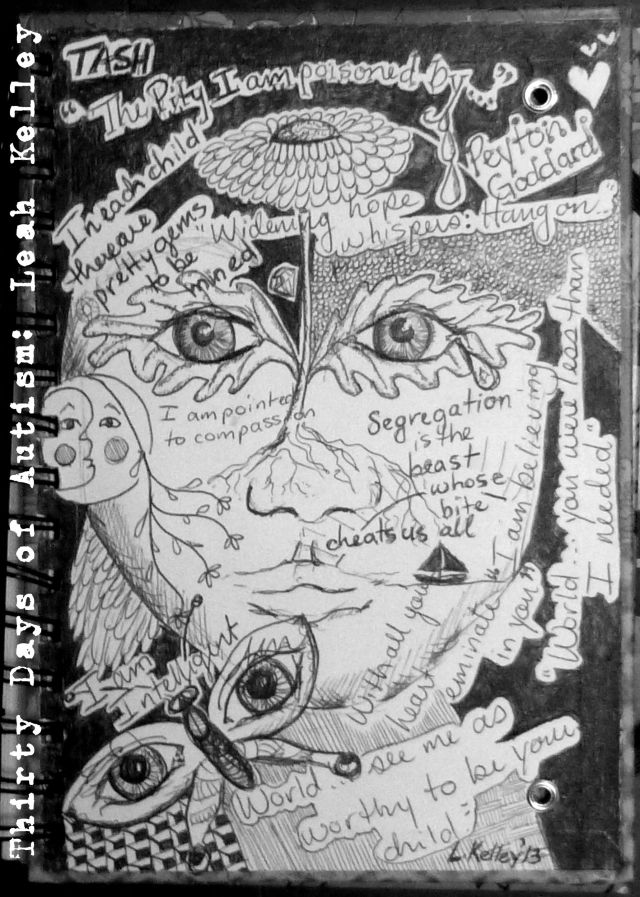 Thirty Days of Autism: Leah Kelley
TASH
"The Pity I am poisoned by..."
Peyton
Goddard
In each child
there are
pretty gems
to be
mined
"Widening hope
whispers: Hang on..."
I am pointed
to compassion
Segregation
is the
beast
whose
bite
cheats us all
"I am believing
in you"
"World... you were less than
I needed"
"I am
Intelligent"
With all your
heart
eminate
World... see me as
worthy to be your
child."
L. Kelley '13